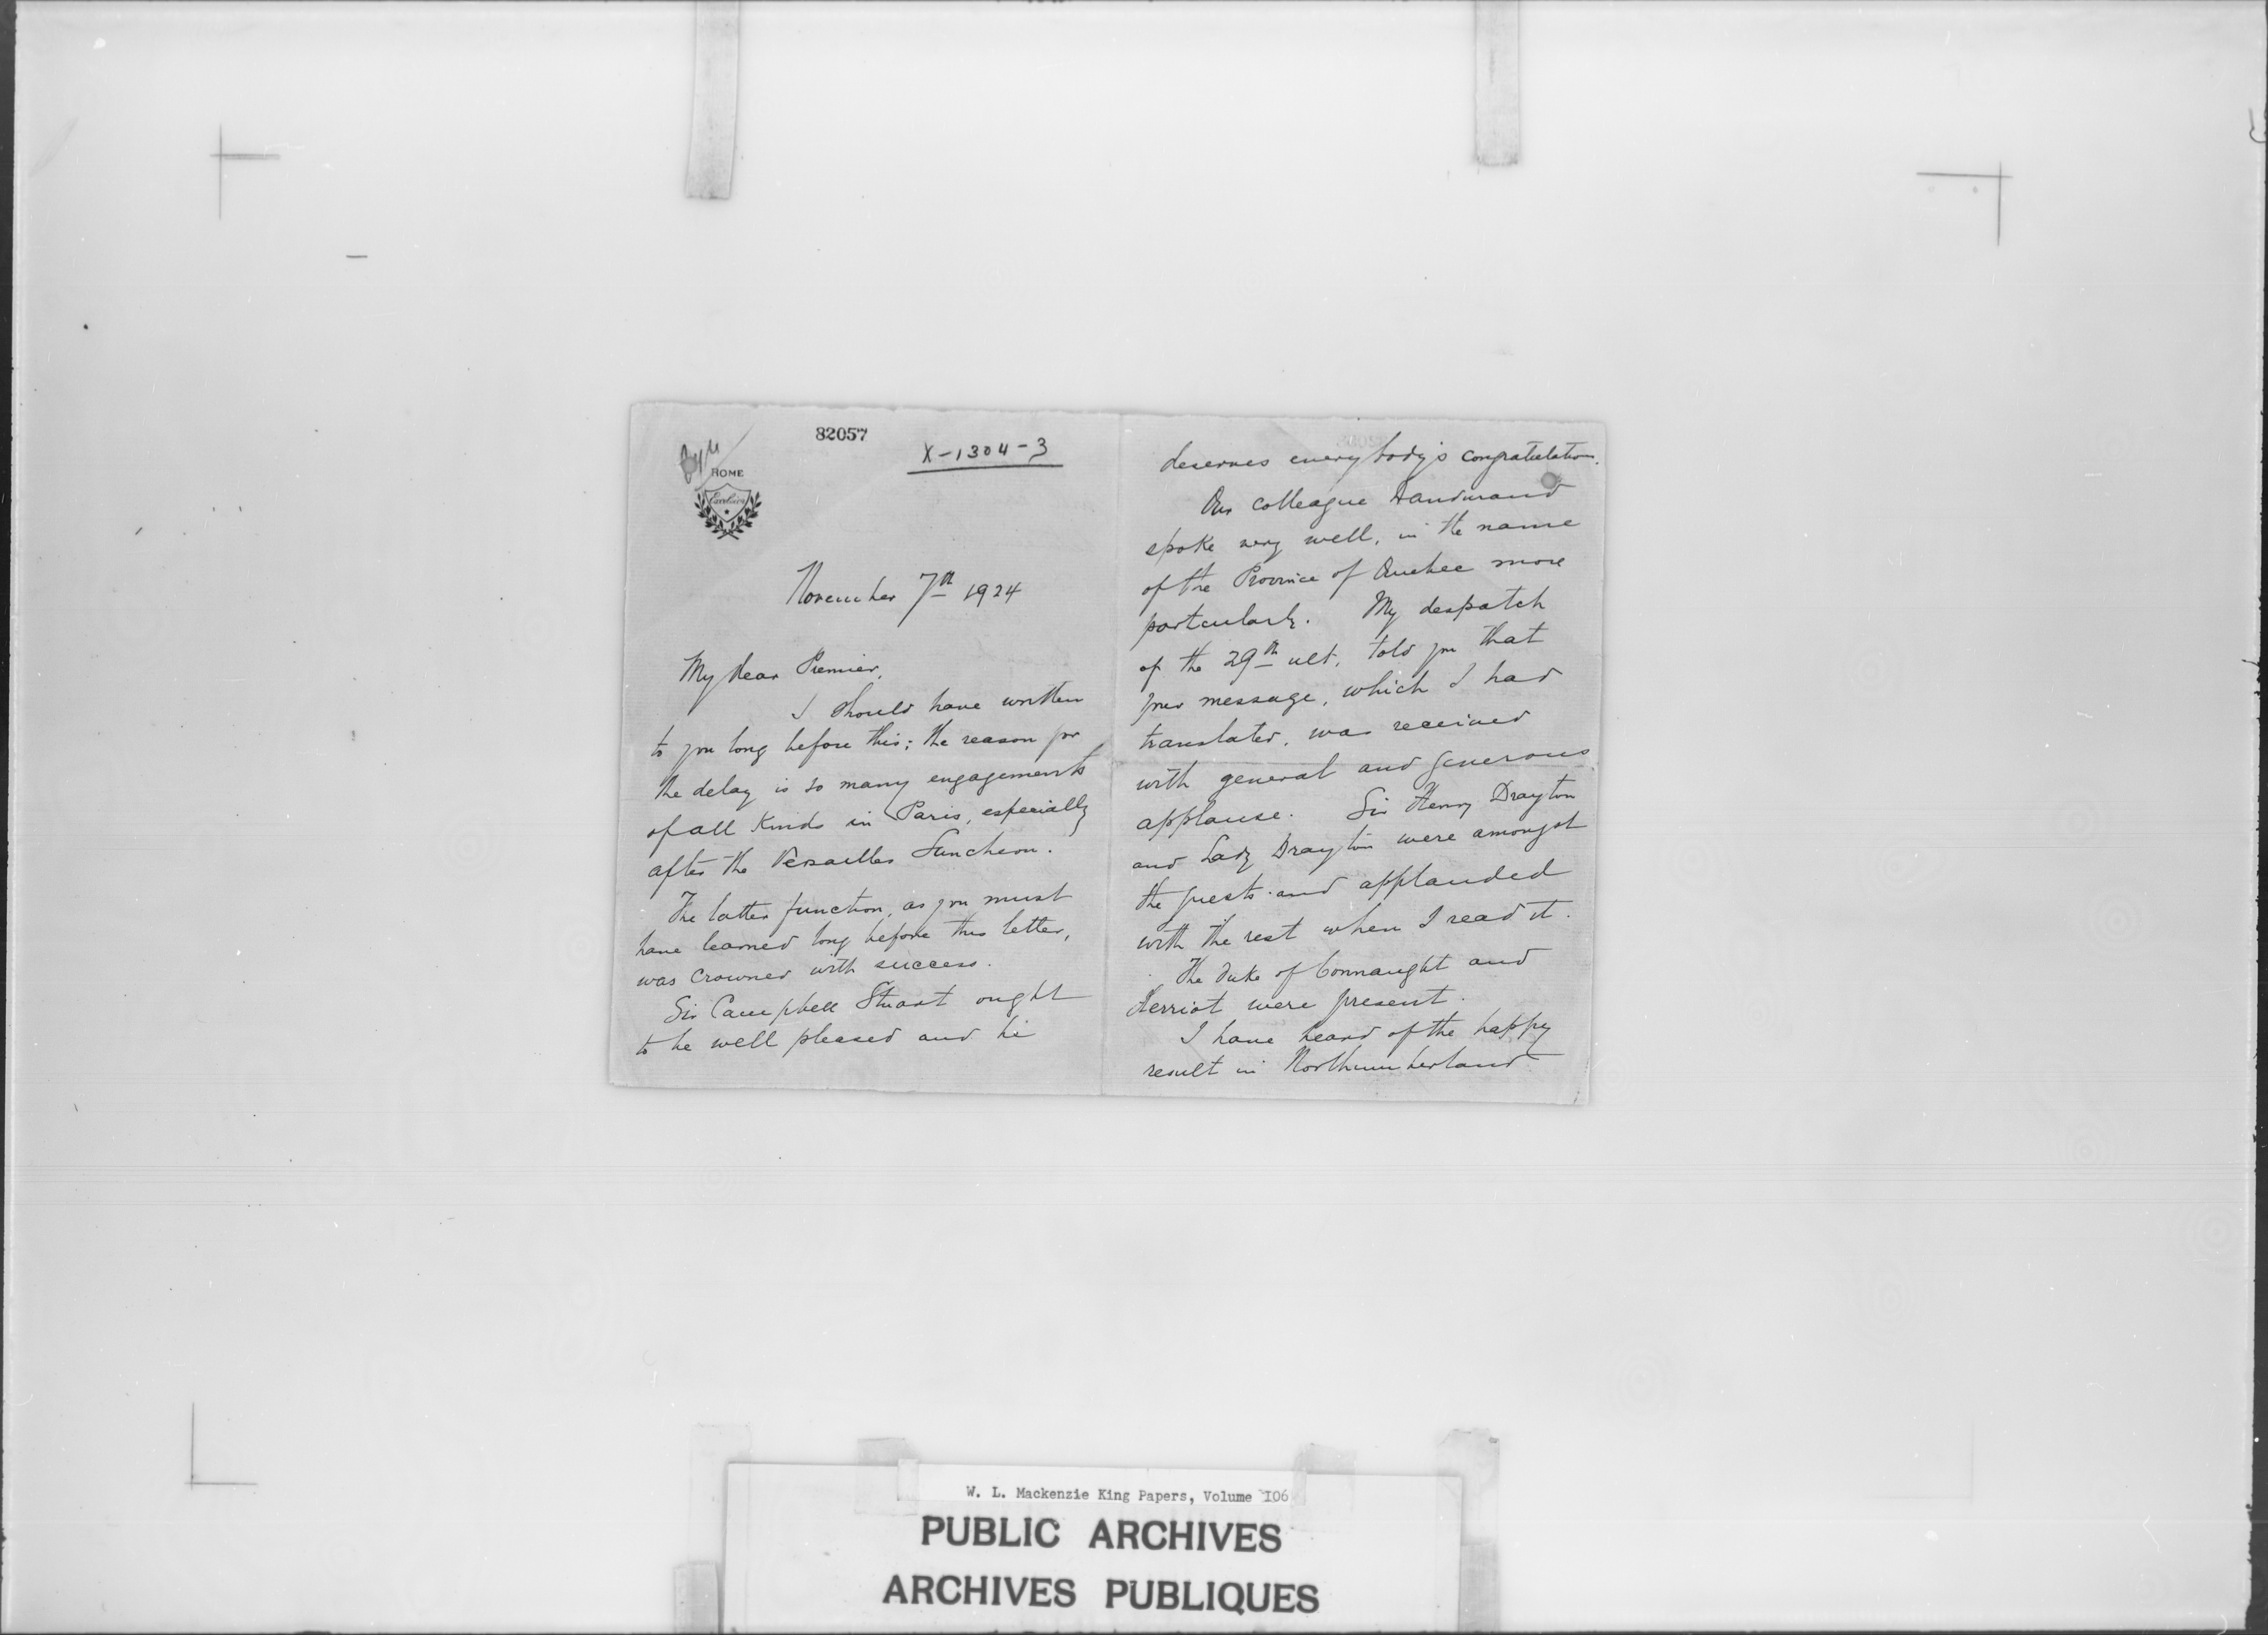 82057
X-1304-3
ROME
Excelsior
November 7th 1924
My dear Premier,
I should have written
to you long before this; the reason for
the delay is so many engagements
of all kinds in Paris, especially
after the Versailles Luncheon.
The latter function, as you must
have learned long before this letter,
was crowned with success.
Sir Campbell Stuart ought
to be well pleased and he
deserves everybody's congratulation.
Our colleague Dandurand
spoke very well, in the name
of the Province of Quebec more
particularly. My despatch
of the 29th ult. told you that
your message, which I had
translated, was received
with general and generous
applause. Sir Henry Drayton
and Lady Drayton were amongst
the guests and applauded
with the rest when I read it.
The Duke of Connaught and
Herriot were present.
I have heard of the happy
result in Northumberland
W. L. Mackenzie King Papers, Volume 106
PUBLIC ARCHIVES
ARCHIVES PUBLIQUES